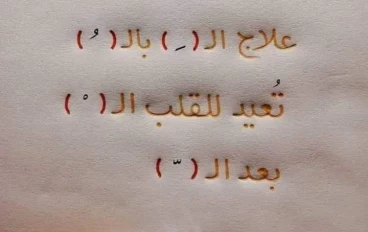 علاج الـ( ِ ) بالـ( ُ )
تُعيد للقلب الـ( ْ )
بعد الـ( ّ )